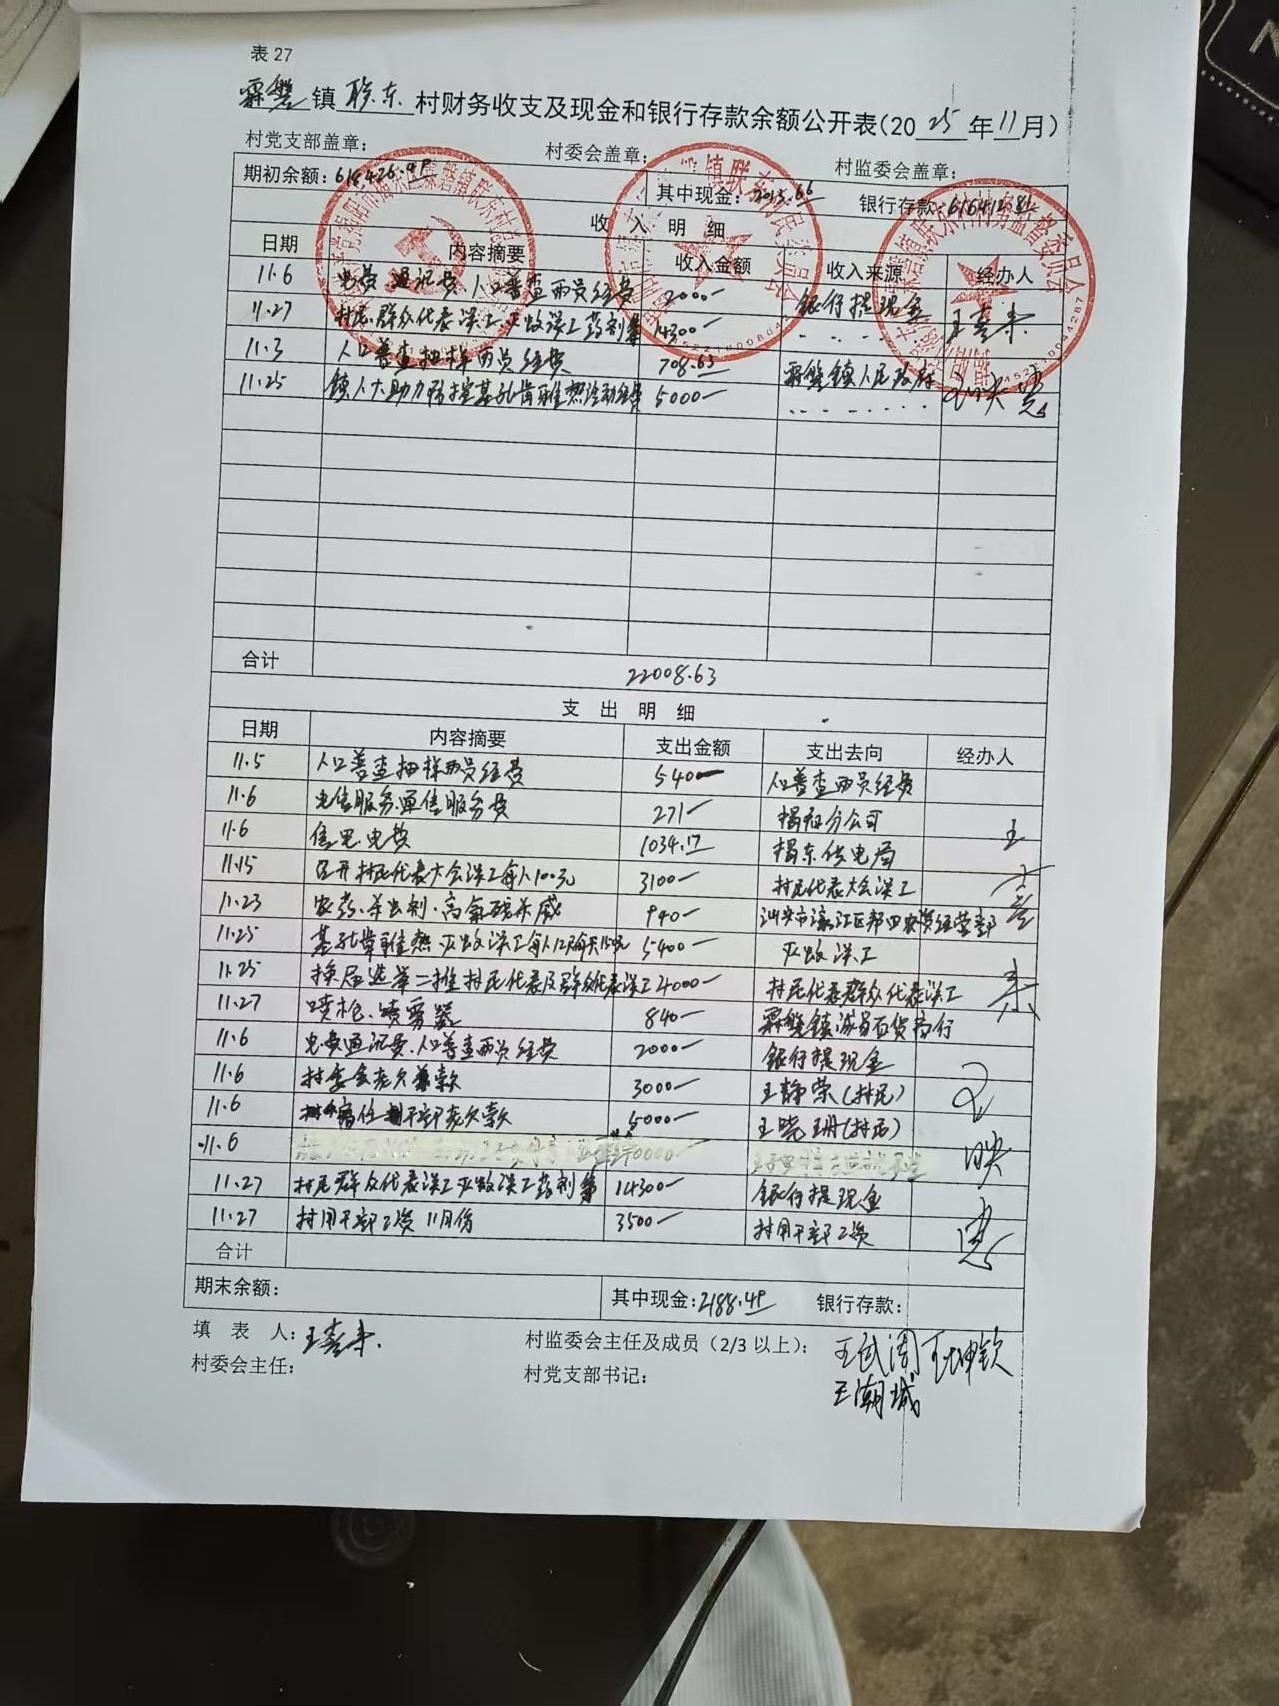 表 27
霖磐镇联东村财务收支及现金和银行存款余额公开表(2025年11月)
村党支部盖章: 村委会盖章: 村监委会盖章:
期初余额: 618426.49 其中现金: 2013.66 银行存款: 616412.83
收 入 明 细
日期 内容摘要 收入金额 收入来源 经办人
11.6 电费 通讯费、人口普查两员经费 2000— 银行提现金
11.27 村民、群众代表误工、灭蚊误工药剂等 14300— 王喜
11.3 人口普查抽样两员经费 708.63 霖磐镇人民政府
11.25 镇人大助力防控基孔肯雅热活动经费 5000—
合计 22008.63
支 出 明 细
日期 内容摘要 支出金额 支出去向 经办人
11.5 人口普查抽样两员经费 540— 人口普查两员经费
11.6 电信服务、通信服务费 271— 分公司
11.6 电费 1034.17 揭东供电局
11.15 召开村民代表大会误工每人100元 3100— 村民代表大会误工
11.23 农药、杀虫剂、高氯 940— 汕头市濠江区 农资经营部
11.25 基孔肯雅热 灭蚊误工每人12天每天150元 5400— 灭蚊误工
11.25 换届选举二推村民代表及群众代表误工 4000— 村民代表群众代表误工
11.27 喷枪、喷雾器 840— 霖磐镇 百货商行
11.6 电费通讯费、人口普查两员经费 2000— 银行提现金
11.6 村委会老欠 款 3000— 王静荣(村民)
11.6 干部老欠款 5000— 王晓珊(村民)
11.6 0000—
11.27 村民群众代表误工灭蚊误工药剂等 14300— 银行提现金
11.27 村用干部工资 11月份 3500— 村用干部工资
合计
期末余额: 其中现金: 2188.49 银行存款:
填 表 人: 王喜 村监委会主任及成员(2/3 以上): 王
村委会主任: 村党支部书记: 王潮城